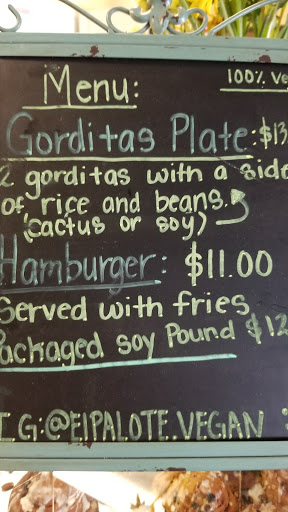 Menu:
100% Ve
Gorditas Plate: $13
2 gorditas with a side
of rice and beans.
(cactus or soy)
Hamburger: $11.00
Served with fries
Packaged soy Pound $12
I G:@ElPALOTE.VEGAN